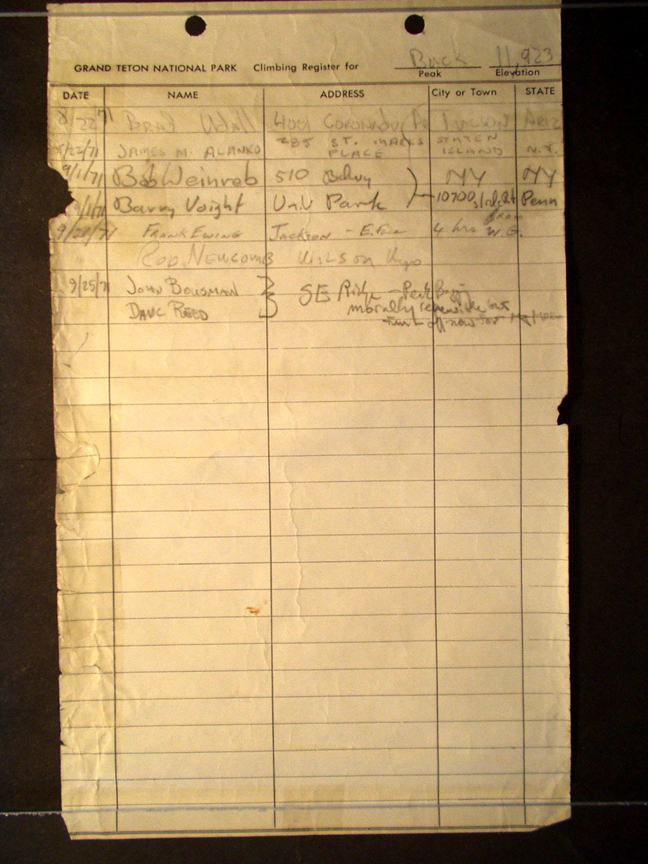 Buck 11,923
GRAND TETON NATIONAL PARK Climbing Register for Peak Elevation
DATE NAME ADDRESS City or Town STATE
8/22/71 4001 ARIZ
8/22/71 JAMES M. ALANKO 285 ST. MARKS PLACE STATEN ISLAND N.Y.
9/1/71 Bob Weinreb 510 NY NY
9/1/71 Barry Voight Univ Park 10700 Penn
9/22/71 FRANK EWING JACKSON - E. Face 4 hrs from W.G.
ROD NEWCOMB WILSON Wyo
9/25/71 JOHN BOUSMAN SE Ridge
DAVE REED morally
off now for